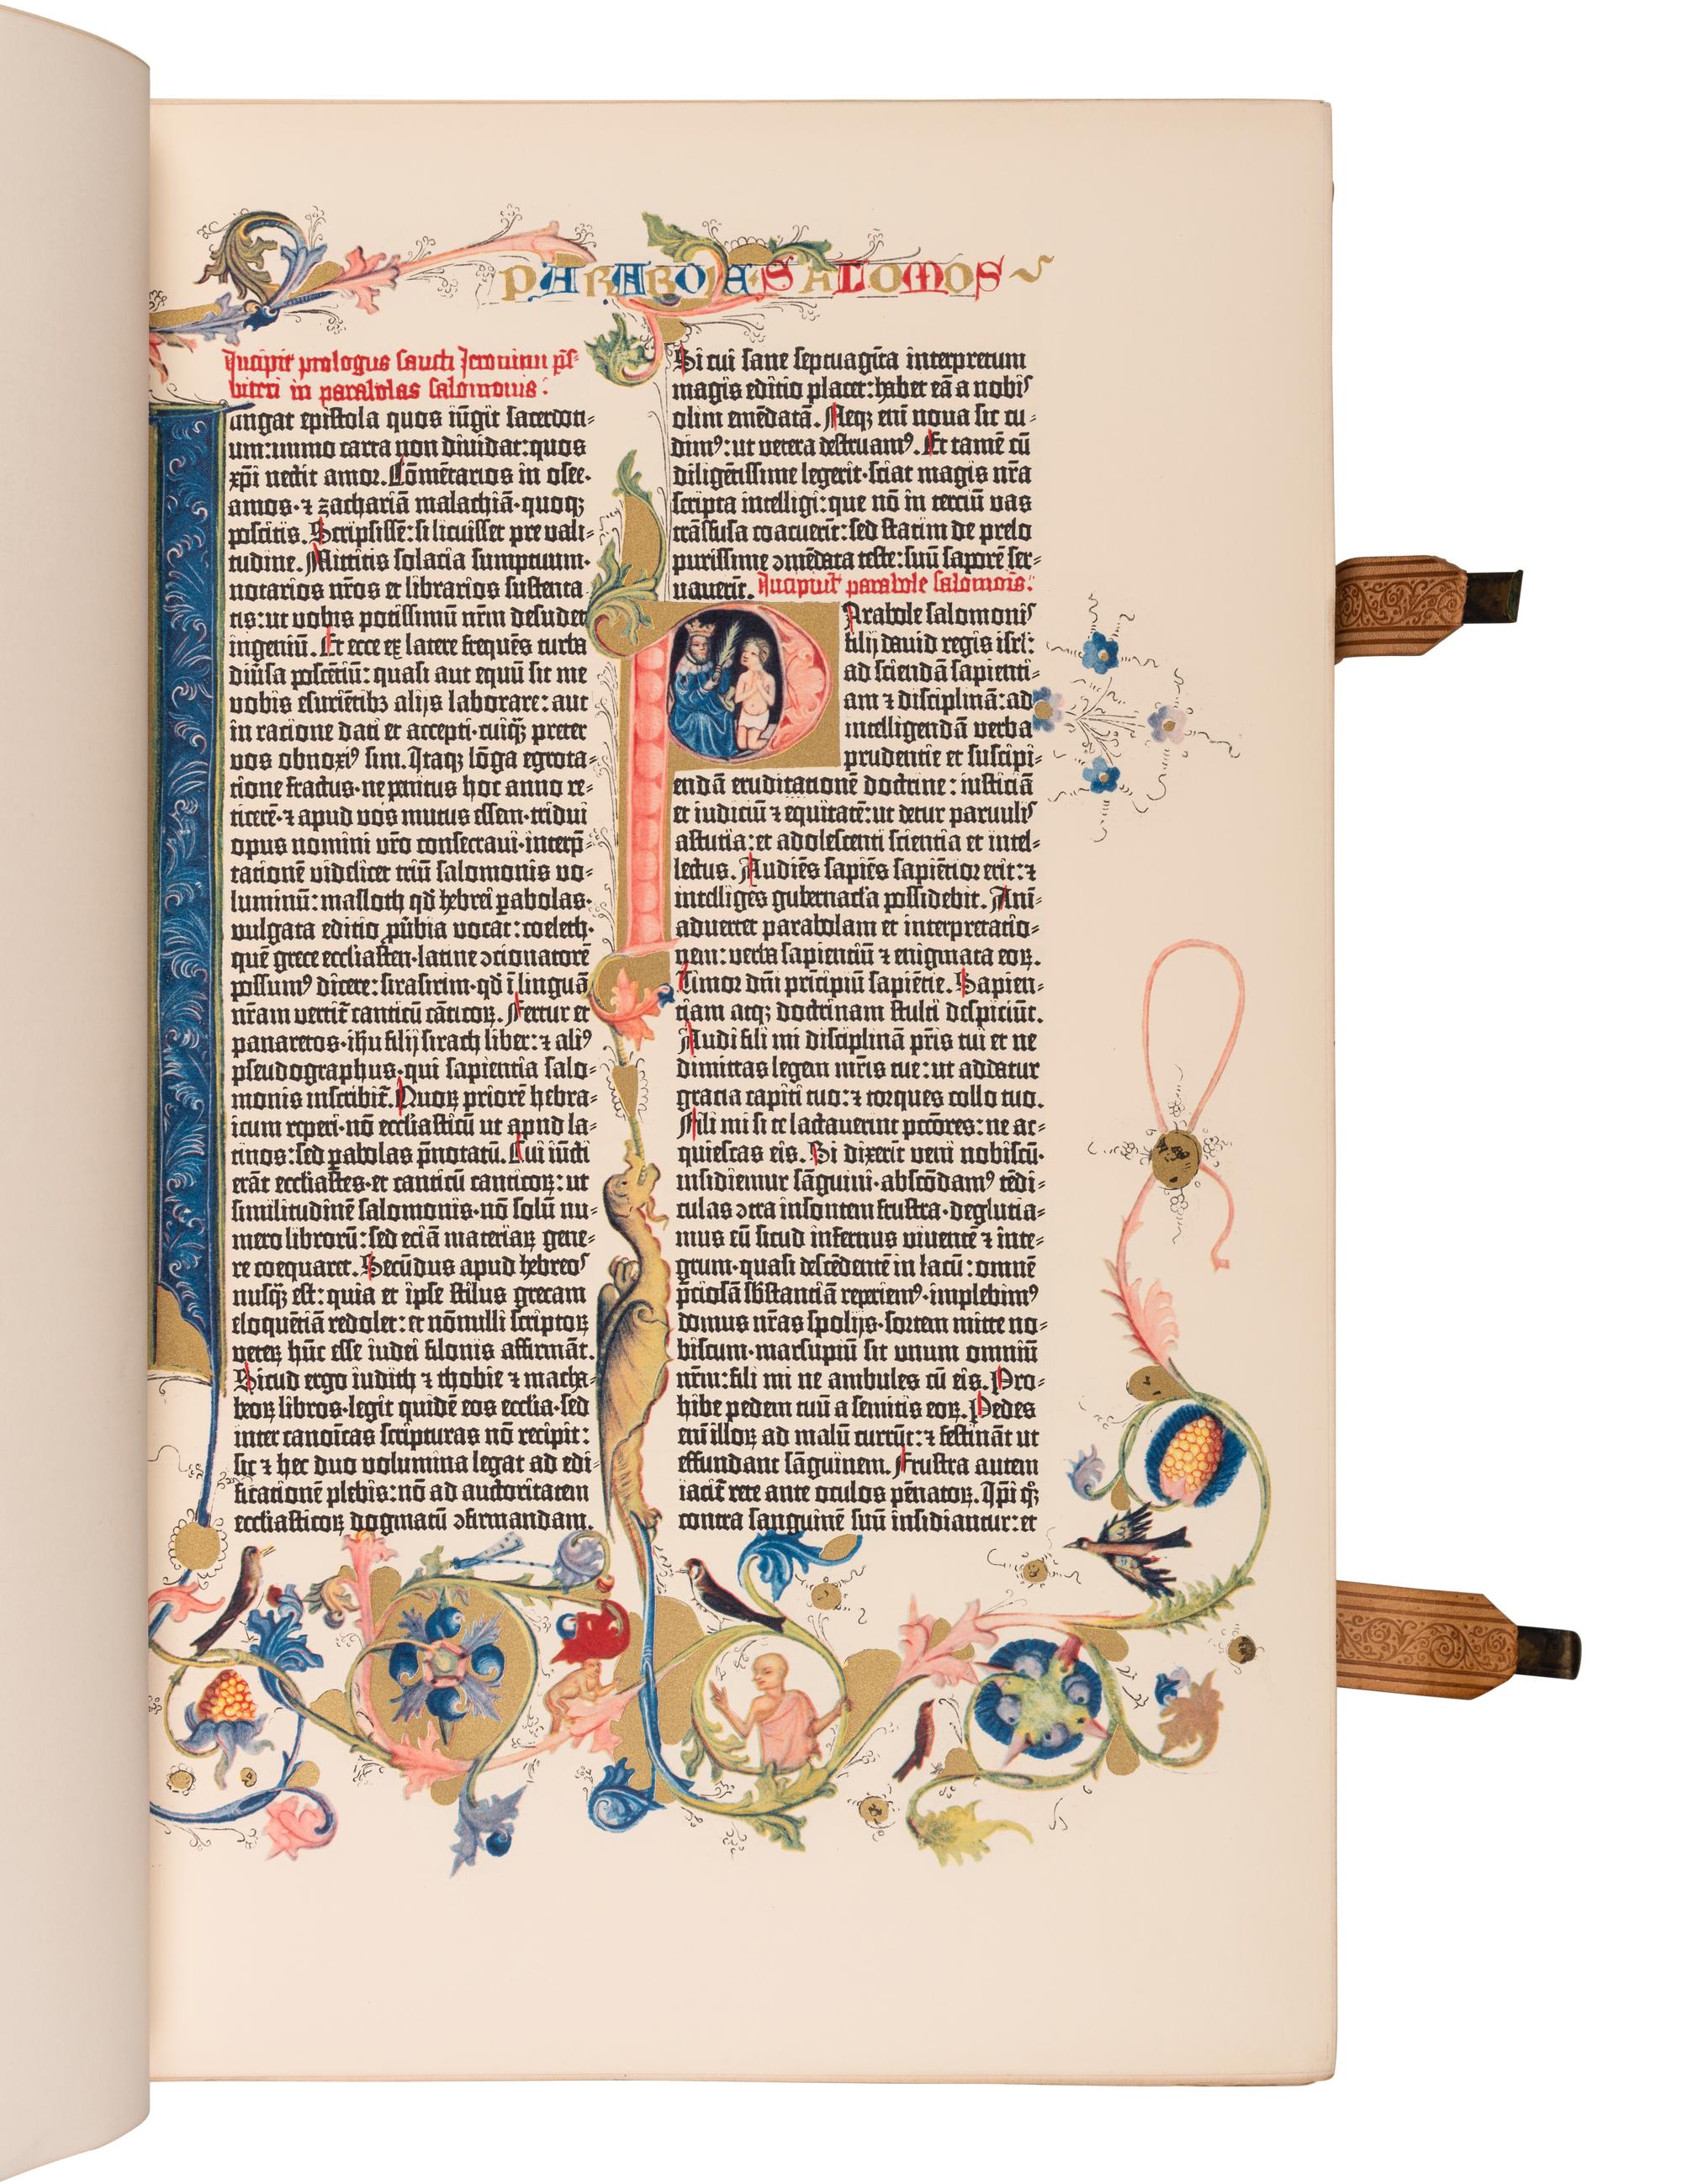 PARABOLAE SALOMOIS
Incipit prologus sancti Ieronimi p̄s-
biteri in parabolas salomonis:
Iungat epistola quos iūgit sacerdoti-
um:immo carta non diuidat:quos
xp̄i nectit amor. Cōmētarios in osee·
amos·⁊ zachariā malachiā·quoqꝫ
poscitis. Scripsissē:si licuisset pre vali-
tudine. Mittitis solacia sumptuum·
notarios nr̄os et librarios sustenta-
tis:ut vobis potissimū nr̄m desudet
ingeniū. Et ecce ex latere frequēs turba
diūsa poscētiū: quasi aut equū sit me
vobis esuriētibꝫ alijs laborare: aut
in ratione dati et accepti·cuiqꝫ preter
vos obnoxiꝰ sim. Itaqꝫ lōga egrota-
tione fractus·ne penitus hoc anno re-
ticerē·⁊ apud vos mutus essem·tridui
opus nomini vr̄o consecraui·interp̄-
tationē videlicet triū salomonis vo-
luminū: masloth qd̄ hebrei ꝑabolas·
vulgata editio ꝓūbia vocat: coeleth·
quē grece ecclīasten·latine ↄcionatorē
possumꝰ dicere: sirasirim·qd̄ ī linguā
nr̄am vertit̄ canticū cāticoꝝ. Fertur et
panaretos·ihu filij sirach liber: ⁊ aliꝰ
pseudographus·qui sapientia salo-
monis inscribit̄. Quoꝝ priorē hebra-
icum reperi·nō ecclīasticū ut apud la-
tinos:sed ꝑabolas p̄notatū. Cui iūcti
erāt ecclīastes·et canticū canticoꝝ: ut
similitudinē salomonis·nō solū nu-
mero librorū: sed eciā materiaꝝ gene-
re coequaret. Secūdus apud hebreos
nusqꝫ est: quia et ipse stilus grecam
eloquētiā redolet: et nōnulli scriptoꝝ
veteꝝ hūc esse iudei filonis affirmāt.
Sicud ergo iudith ⁊ thobie ⁊ macha-
beoꝝ libros·legit quidē eos ecclīa·sed
inter canoīcas scripturas nō recipit:
sic ⁊ hec duo volumina legat ad edi-
ficationē plebis:nō ad auctoritatem
ecclīasticoꝝ dogmatū ↄfirmandam.
Si cui sane septuagīta interpretum
magis editio placet: habet eā a nobis
olim emēdatā. Neqꝫ eni noua sic cu-
dimꝰ:ut vetera destruamꝰ. Et tamē cū
diligētissime legerit·sciat magis nr̄a
scripta intelligi: que nō in terciū vas
trāsfusa coacuerīt: sed statim de prelo
purissime ↄmēdata teste: suū saporē ser-
uauerīt. Incipiūt parabole salomōis:
Parabole salomonis
filij dauid regis isrl̄:
ad sciendā sapienti-
am ⁊ disciplinā: ad
intelligendā verba
prudentie et suscipi-
endā eruditationē doctrine: iusticiā
et iudiciū ⁊ equitatē: ut detur paruulis
astutia: et adolescenti scientia et intel-
lectus. Audiēs sapiēs sapiētior erit: ⁊
intelliges gubernacl̄a possidebit. Ani-
aduertet parabolam et interpretatio-
nem: verba sapientiū ⁊ enigmata eoꝝ.
Timor dn̄i principiū sapiētie. Sapien-
tiam atqꝫ doctrinam stulti despiciūt.
Audi fili mi disciplinā pr̄is tui et ne
dimittas legem mr̄is tue: ut addatur
gracia capiti tuo: ⁊ torques collo tuo.
Fili mi si te lactauerint pctōres: ne ac-
quiescas eis. Si dixerīt veni nobiscū·
insidiemur sāguini·abscōdamꝰ tēdi-
culas ↄtra insontem frustra·deglutia-
mus eū sicud infernus viuentē ⁊ inte-
grum·quasi descēdentē in lacū: omnē
p̄ciosā sb̄stantiā reperiemꝰ·implebimꝰ
domus nr̄as spolijs·sortem mitte no-
biscum·marsupiū sit unum omniū
nr̄m: fili mi ne ambules cū eis. Pro-
hibe pedem tuū a semitis eoꝝ. Pedes
eni illoꝝ ad malū currūt: ⁊ festināt ut
effundant sāguinem. Frustra autem
iacit̄ rete ante oculos pēnatoꝝ. Ip̄i qꝫ
contra sanguinē suū insidiantur: et